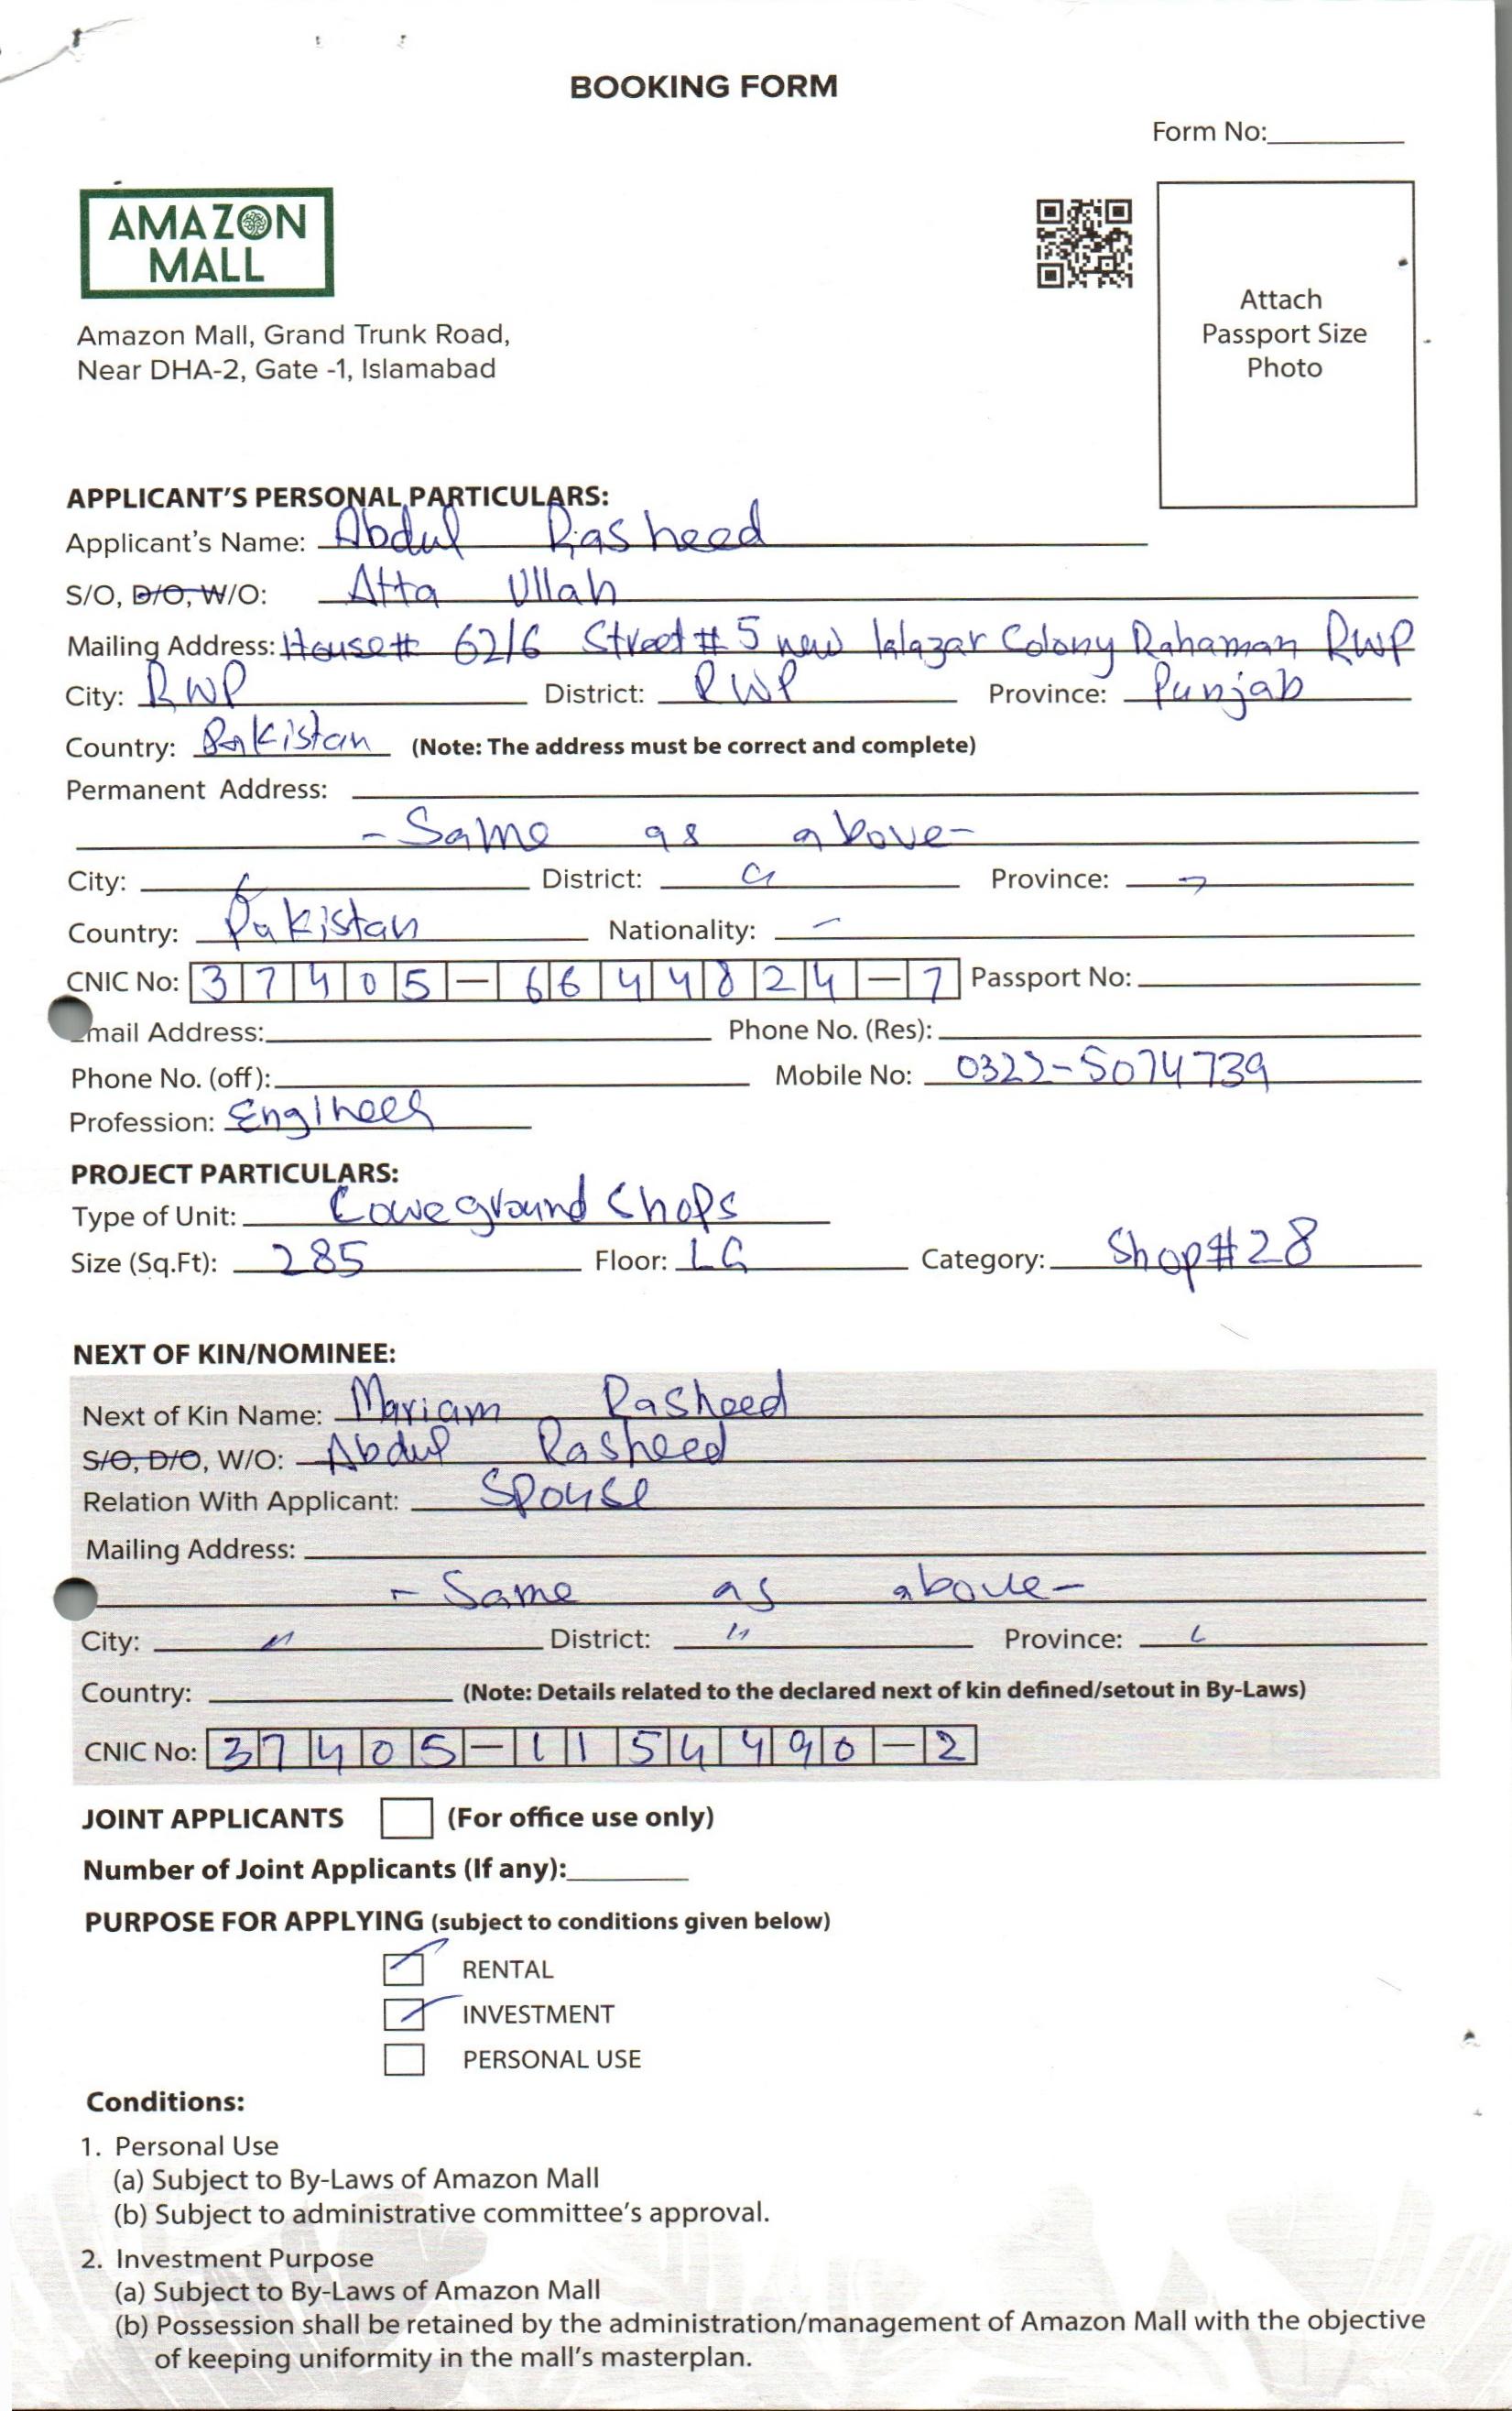 BOOKING FORM
Form No:
AMAZON
MALL
Amazon Mall, Grand Trunk Road,
Near DHA-2, Gate -1, Islamabad
Attach
Passport Size
Photo
APPLICANT'S PERSONAL PARTICULARS:
Applicant's Name: Abdul Rasheed
S/O, D/O, W/O: Atta Ullah
Mailing Address: House# 62/6 Street # 5 new lalazar Colony Rahaman RWP
City: RWP District: RWP Province: Punjab
Country: Pakistan (Note: The address must be correct and complete)
Permanent Address:
- Same as above -
City: District: Province:
Country: Pakistan Nationality:
CNIC No: 37405-6644824-7 Passport No:
mail Address: Phone No. (Res):
Phone No. (off): Mobile No: 0322-5074739
Profession: Engineer
PROJECT PARTICULARS:
Type of Unit: Loweground Shops
Size (Sq.Ft): 285 Floor: LG Category: Shop#28
NEXT OF KIN/NOMINEE:
Next of Kin Name: Mariam Rasheed
S/O, D/O, W/O: Abdul Rasheed
Relation With Applicant: Spouse
Mailing Address:
- Same as above -
City: " District: " Province:
Country: (Note: Details related to the declared next of kin defined/setout in By-Laws)
CNIC No: 37405-1154490-2
JOINT APPLICANTS (For office use only)
Number of Joint Applicants (If any):
PURPOSE FOR APPLYING (subject to conditions given below)
RENTAL
INVESTMENT
PERSONAL USE
Conditions:
1. Personal Use
(a) Subject to By-Laws of Amazon Mall
(b) Subject to administrative committee's approval.
2. Investment Purpose
(a) Subject to By-Laws of Amazon Mall
(b) Possession shall be retained by the administration/management of Amazon Mall with the objective
of keeping uniformity in the mall's masterplan.